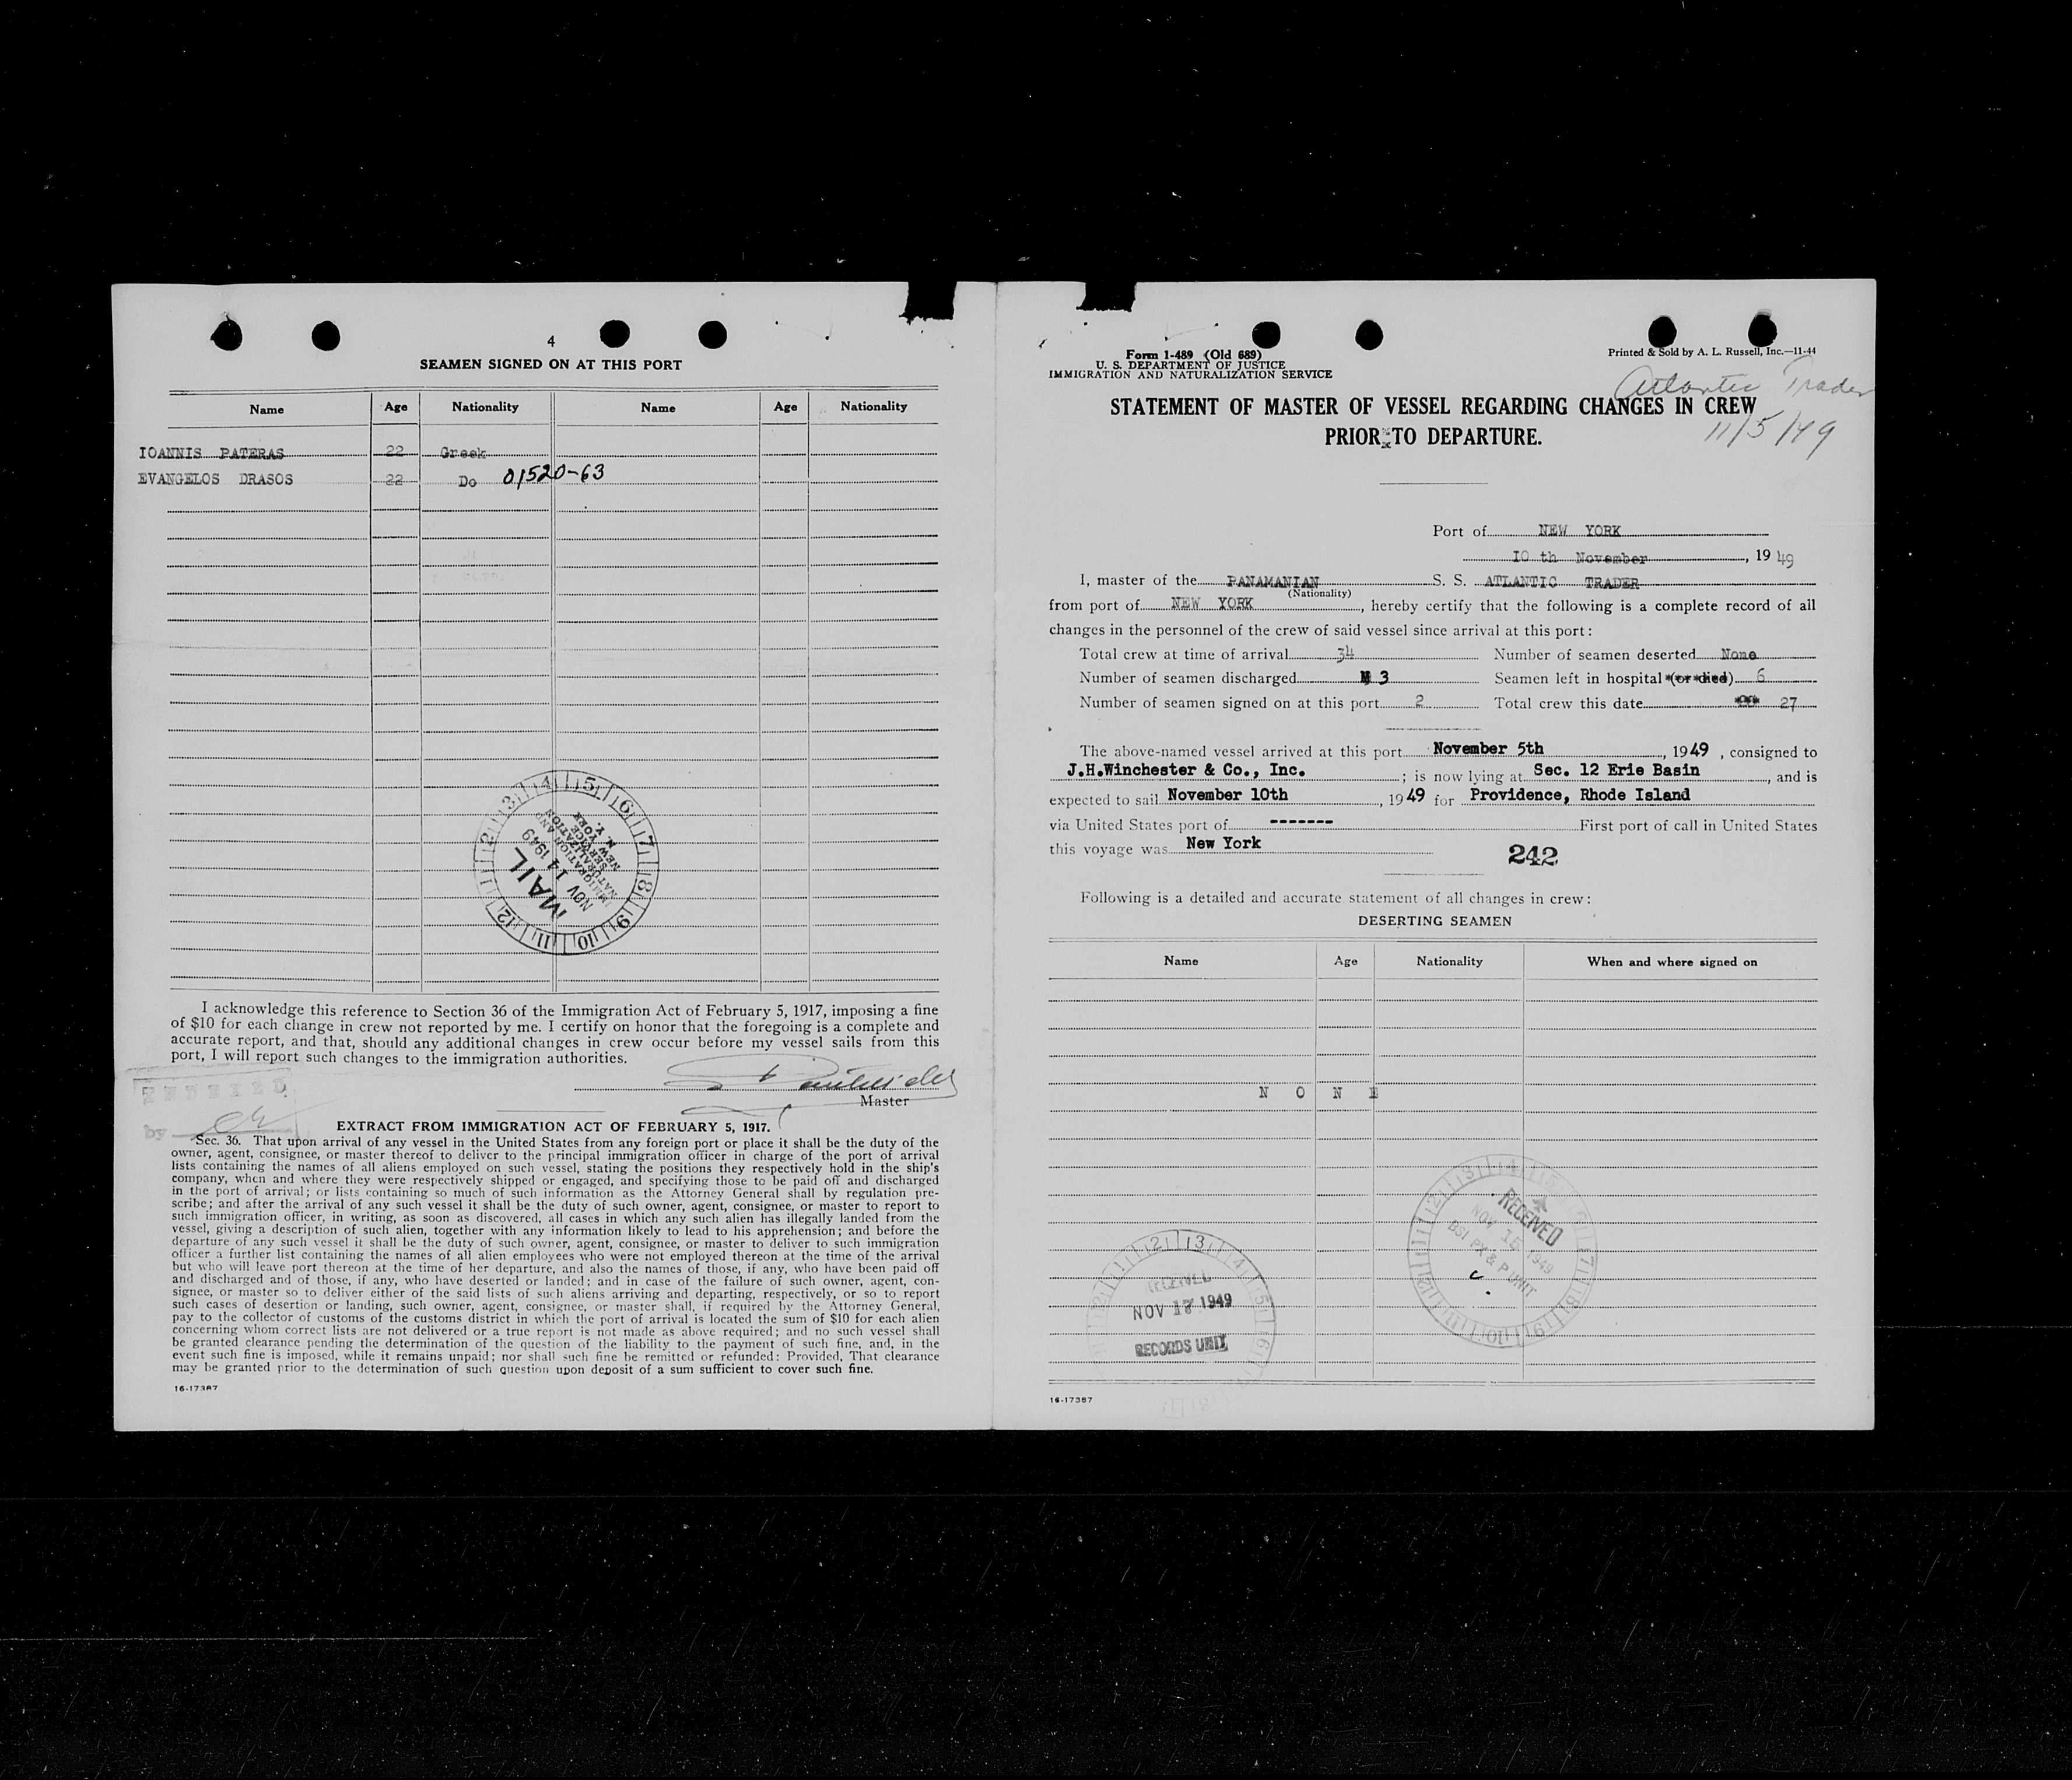 4
SEAMEN SIGNED ON AT THIS PORT
Name Age Nationality Name Age Nationality
IOANNIS PATERAS 22 Greek
EVANGELOS DRASOS 22 Do 01520-63
MAIL
NOV 14 1949
IMMIGRATION AND
NATURALIZATION
SERVICE
NEW YORK
N. Y.
I acknowledge this reference to Section 36 of the Immigration Act of February 5, 1917, imposing a fine
of $10 for each change in crew not reported by me. I certify on honor that the foregoing is a complete and
accurate report, and that, should any additional changes in crew occur before my vessel sails from this
port, I will report such changes to the immigration authorities.
Master
by
EXTRACT FROM IMMIGRATION ACT OF FEBRUARY 5, 1917.
Sec. 36. That upon arrival of any vessel in the United States from any foreign port or place it shall be the duty of the
owner, agent, consignee, or master thereof to deliver to the principal immigration officer in charge of the port of arrival
lists containing the names of all aliens employed on such vessel, stating the positions they respectively hold in the ship's
company, when and where they were respectively shipped or engaged, and specifying those to be paid off and discharged
in the port of arrival; or lists containing so much of such information as the Attorney General shall by regulation pre-
scribe; and after the arrival of any such vessel it shall be the duty of such owner, agent, consignee, or master to report to
such immigration officer, in writing, as soon as discovered, all cases in which any such alien has illegally landed from the
vessel, giving a description of such alien, together with any information likely to lead to his apprehension; and before the
departure of any such vessel it shall be the duty of such owner, agent, consignee, or master to deliver to such immigration
officer a further list containing the names of all alien employees who were not employed thereon at the time of the arrival
but who will leave port thereon at the time of her departure, and also the names of those, if any, who have been paid off
and discharged and of those, if any, who have deserted or landed; and in case of the failure of such owner, agent, con-
signee, or master so to deliver either of the said lists of such aliens arriving and departing, respectively, or so to report
such cases of desertion or landing, such owner, agent, consignee, or master shall, if required by the Attorney General,
pay to the collector of customs of the customs district in which the port of arrival is located the sum of $10 for each alien
concerning whom correct lists are not delivered or a true report is not made as above required; and no such vessel shall
be granted clearance pending the determination of the question of the liability to the payment of such fine, and, in the
event such fine is imposed, while it remains unpaid; nor shall such fine be remitted or refunded: Provided, That clearance
may be granted prior to the determination of such question upon deposit of a sum sufficient to cover such fine.
16-17387
Form 1-489 (Old 689)
U. S. DEPARTMENT OF JUSTICE
IMMIGRATION AND NATURALIZATION SERVICE
Printed & Sold by A. L. Russell, Inc.—11-44
Atlantic Trader
11/5/49
STATEMENT OF MASTER OF VESSEL REGARDING CHANGES IN CREW
PRIOR TO DEPARTURE.
Port of NEW YORK
10 th November, 1949
I, master of the PANAMANIAN S. S. ATLANTIC TRADER
(Nationality)
from port of NEW YORK, hereby certify that the following is a complete record of all
changes in the personnel of the crew of said vessel since arrival at this port:
Total crew at time of arrival 34 Number of seamen deserted None
Number of seamen discharged 3 Seamen left in hospital (or died) 6
Number of seamen signed on at this port 2 Total crew this date 27
The above-named vessel arrived at this port November 5th, 1949, consigned to
J.H.Winchester & Co., Inc.; is now lying at Sec. 12 Erie Basin, and is
expected to sail November 10th, 1949 for Providence, Rhode Island
via United States port of ------- First port of call in United States
this voyage was New York
242
Following is a detailed and accurate statement of all changes in crew:
DESERTING SEAMEN
Name Age Nationality When and where signed on
N O N E
RECEIVED
NOV 15 1949
BSI PX & P UNIT
RECEIVED
NOV 17 1949
RECORDS UNIT
16-17387